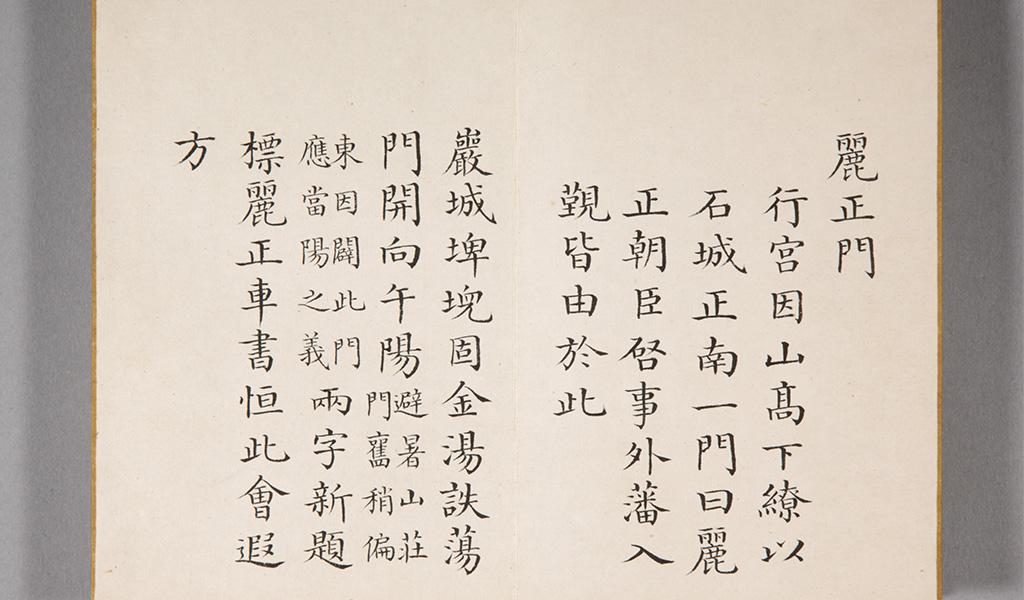 麗正門
行宮因山髙下繚以
石城正南一門曰麗
正朝臣啓事外藩入
覲皆由於此
巖城埤堄固金湯詄蕩
門開向午陽避暑山莊門舊稍偏
東因闢此門應當陽之義兩字新題
標麗正車書恒此會遐
方